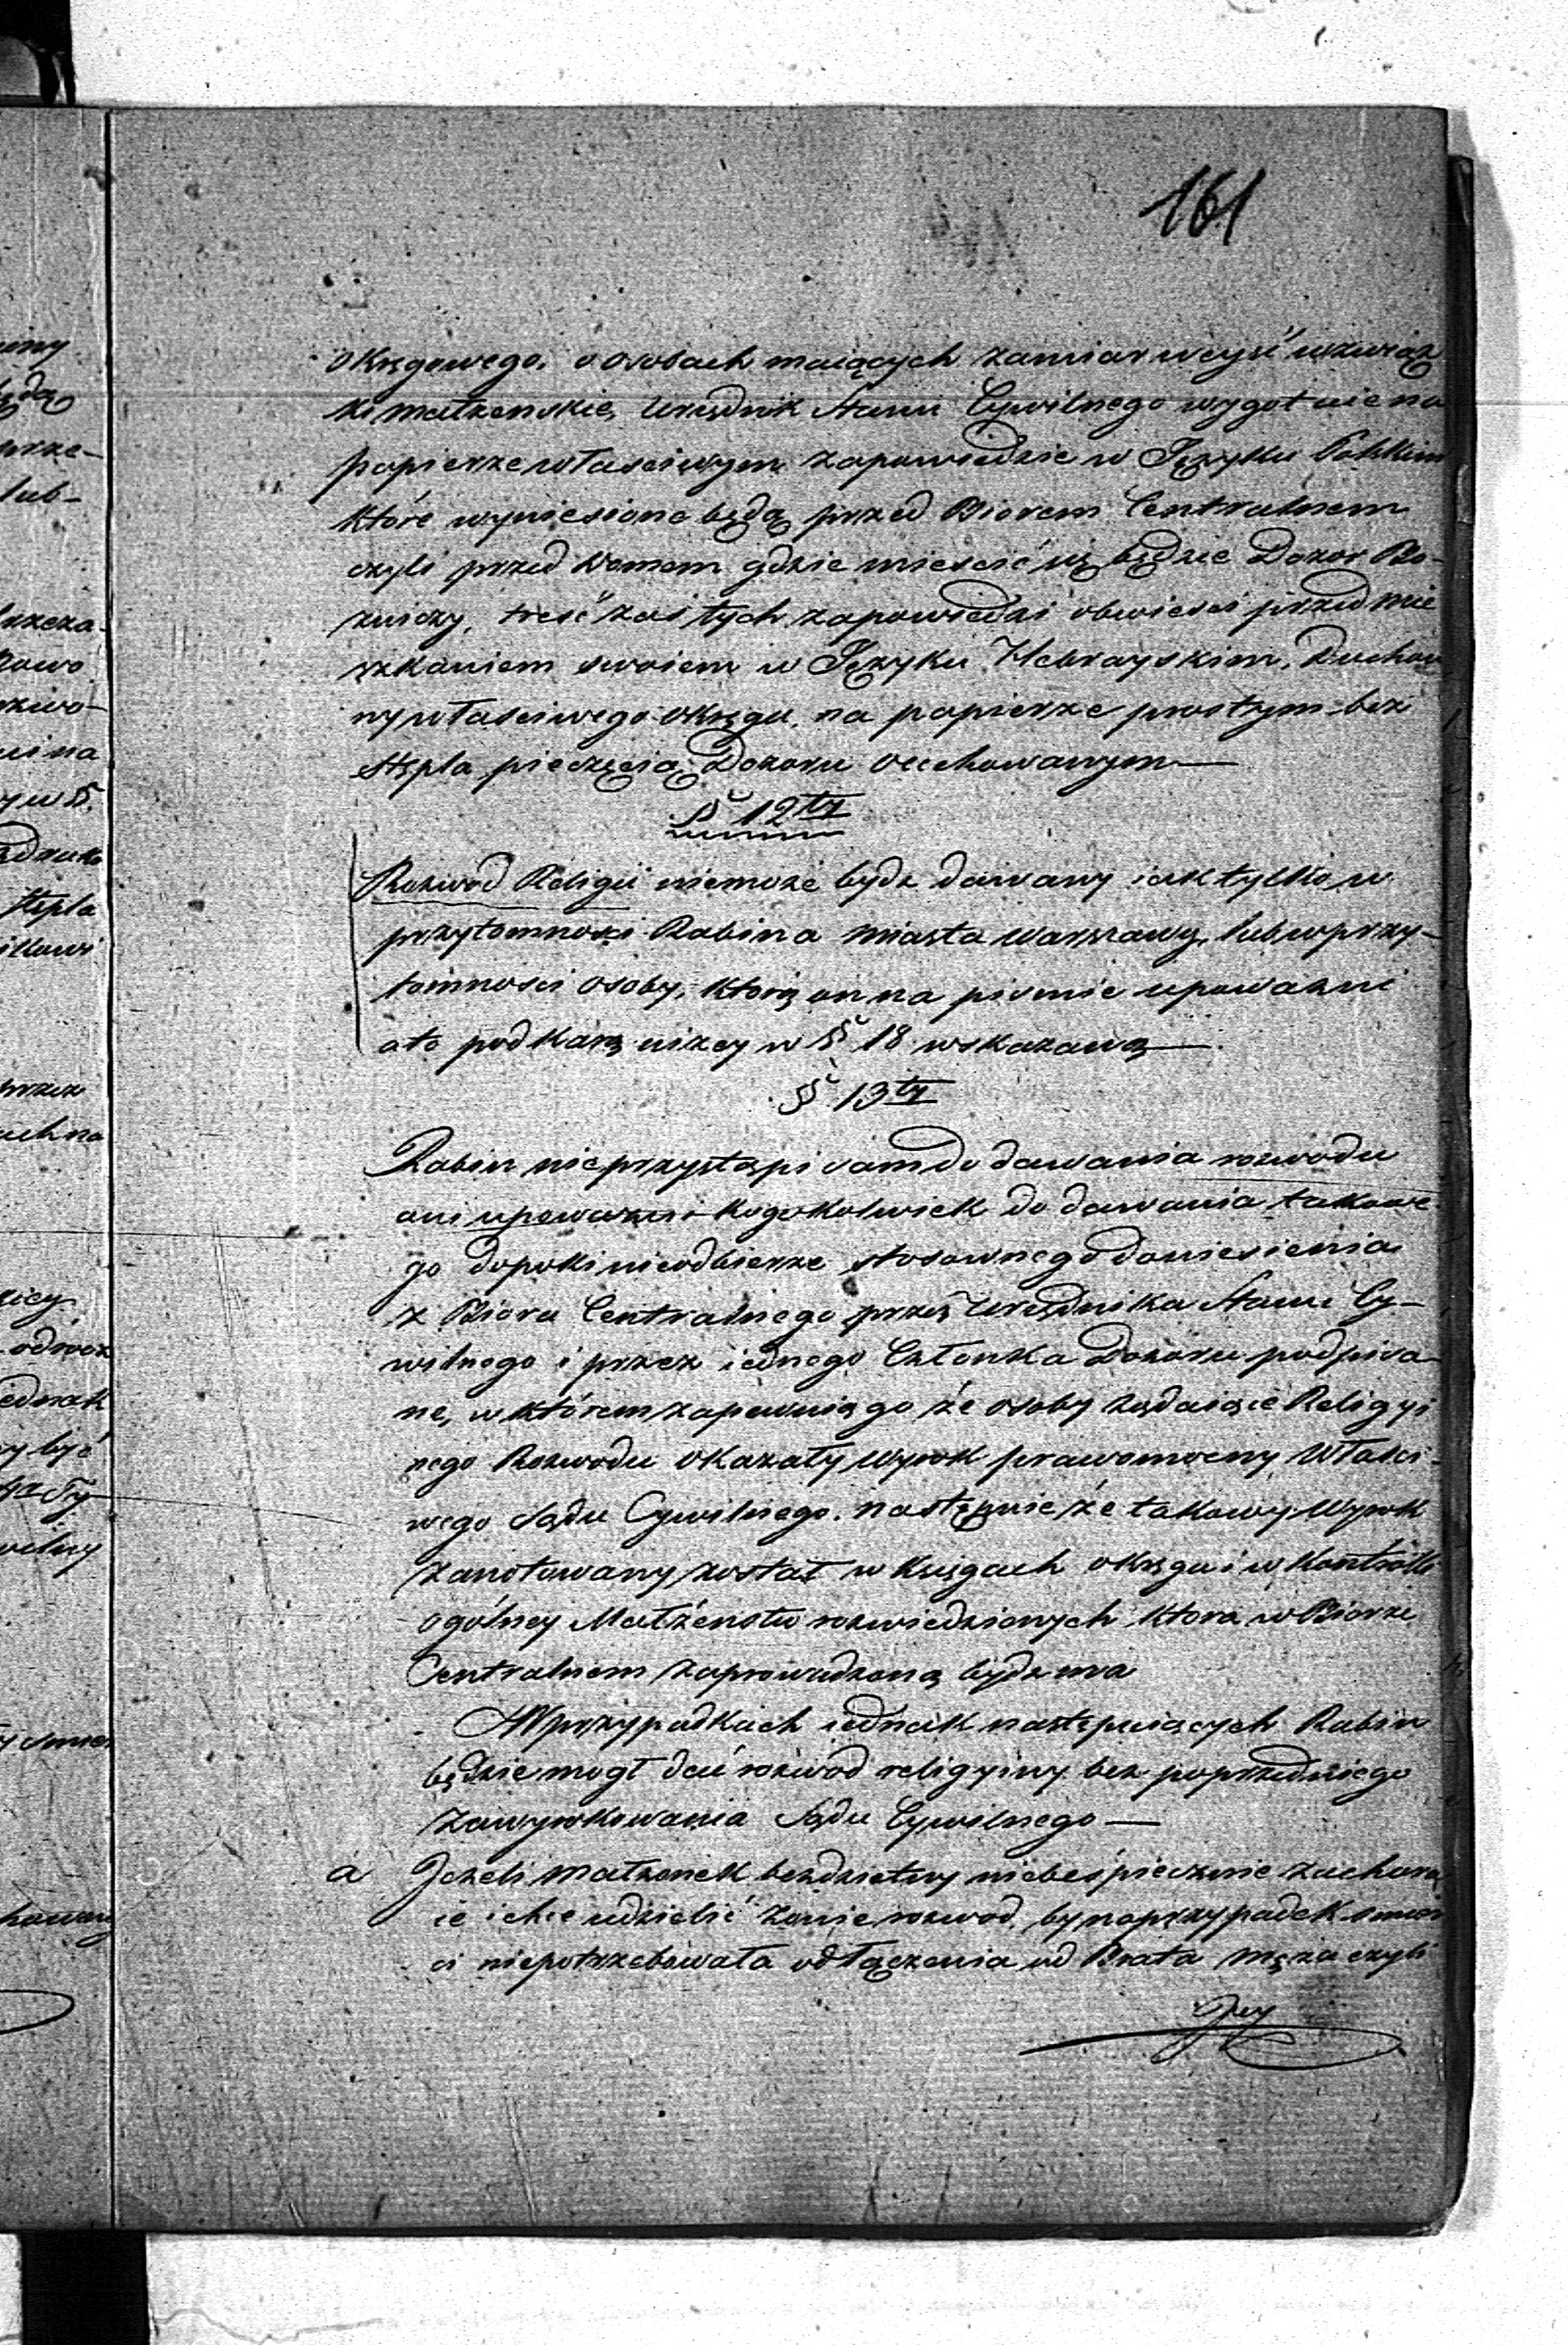 161
okręgowego. o osobach maiących zamiar weyść w związ
ki małżenskie, Urzędnik Stanu Cywilnego wygotuie na
papierze właściwym zapowiedzie w Języku Polskim
które wyniesione będą przed Biorem Centralnem
czyli przed Domem gdzie mieścić się będzie Dozor Bo-
zniczy, treść zaś tych zapowiedzi obwieści przed mie
szkaniem swoiem w Języku Hebrayskim, Duchow
ny właściwego okręgu, na papierze prostym bez
stępla pieczęcią Dozoru cechowanym —
§ 12ty
Rozwod Religii niemoże bydz dawany iak tylko w
przytomności Rabina miasta Warszawy, lub w przy-
tomności osoby, którą on na pismie upoważni
a to pod karą niżey w § 18 wskazaną —
§ 13ty
Rabin nieprzystąpi sam do dawania rozwodu
ani upoważni kogokolwiek do dawania takowe
go dopoki nieodbierze stosownego doniesienia
z Biora Centralnego przez Urzędnika Stanu Cy-
wilnego i przez iednego Członka Dozoru podpisa-
ne, w którem zapewnią go że osoby żądaiące Religyi
nego Rozwodu okazały wyrok prawomocny Właści-
wego Sądu Cywilnego. następnie że takowy wyrok
zanotowany został w Księgach okręgu i w Kontrolli
ogólney Małżeństw rozwiedzionych która w Biorze
Centralnem zaprowadzoną bydz ma
W przypadkach iednak następuiących Rabin
będzie mogł dać rozwod religyiny bez poprzedniego
zawyrokowania Sądu Cywilnego —
a Jeżeli małżonek bezdzietny niebeśpiecznie zachoru
ie i chce udzielić żonie rozwod, by na przypadek smier
ci niepotrzebowała odłączenia od Brata męża czyli